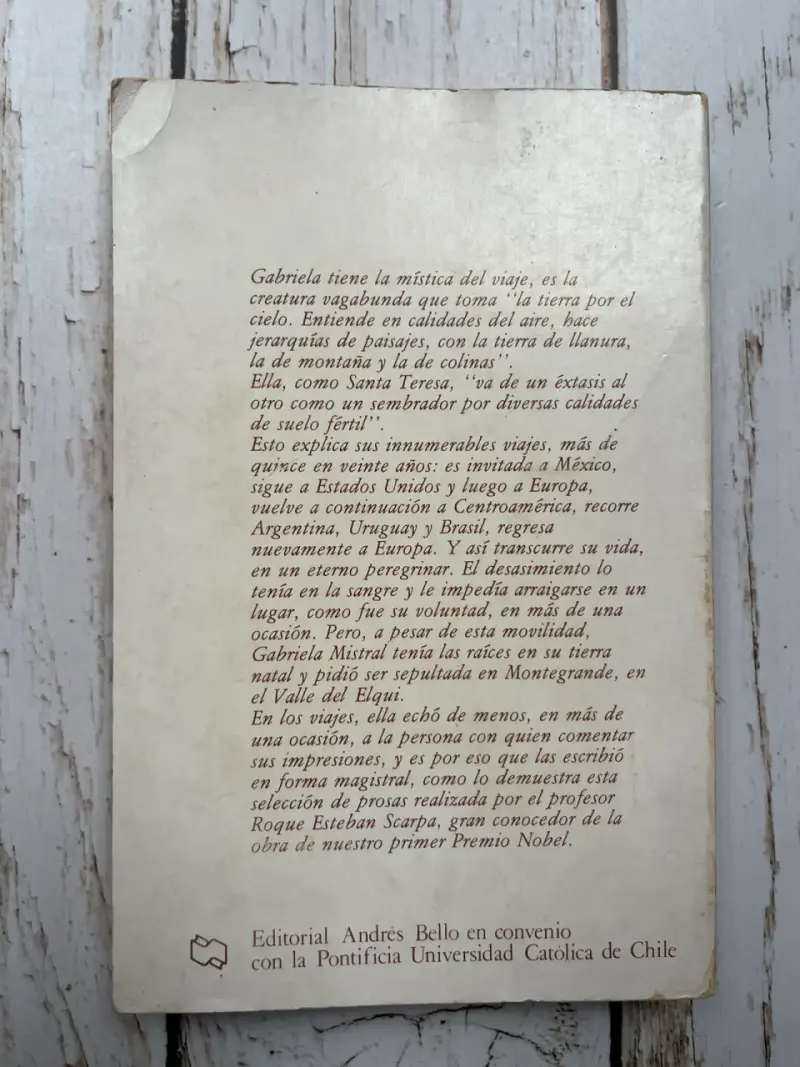 Gabriela tiene la mística del viaje, es la
creatura vagabunda que toma ‘‘la tierra por el
cielo. Entiende en calidades del aire, hace
jerarquías de paisajes, con la tierra de llanura,
la de montaña y la de colinas’’.
Ella, como Santa Teresa, ‘‘va de un éxtasis al
otro como un sembrador por diversas calidades
de suelo fértil’’.
Esto explica sus innumerables viajes, más de
quince en veinte años: es invitada a México,
sigue a Estados Unidos y luego a Europa,
vuelve a continuación a Centroamérica, recorre
Argentina, Uruguay y Brasil, regresa
nuevamente a Europa. Y así transcurre su vida,
en un eterno peregrinar. El desasimiento lo
tenía en la sangre y le impedía arraigarse en un
lugar, como fue su voluntad, en más de una
ocasión. Pero, a pesar de esta movilidad,
Gabriela Mistral tenía las raíces en su tierra
natal y pidió ser sepultada en Montegrande, en
el Valle del Elqui.
En los viajes, ella echó de menos, en más de
una ocasión, a la persona con quien comentar
sus impresiones, y es por eso que las escribió
en forma magistral, como lo demuestra esta
selección de prosas realizada por el profesor
Roque Esteban Scarpa, gran conocedor de la
obra de nuestro primer Premio Nobel.
Editorial Andrés Bello en convenio
con la Pontificia Universidad Católica de Chile